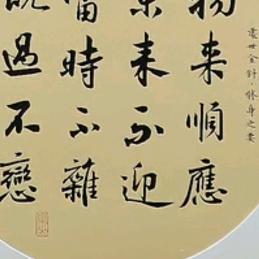 處世金針·修身之要
物來順應
未來不迎
當時不雜
既過不戀